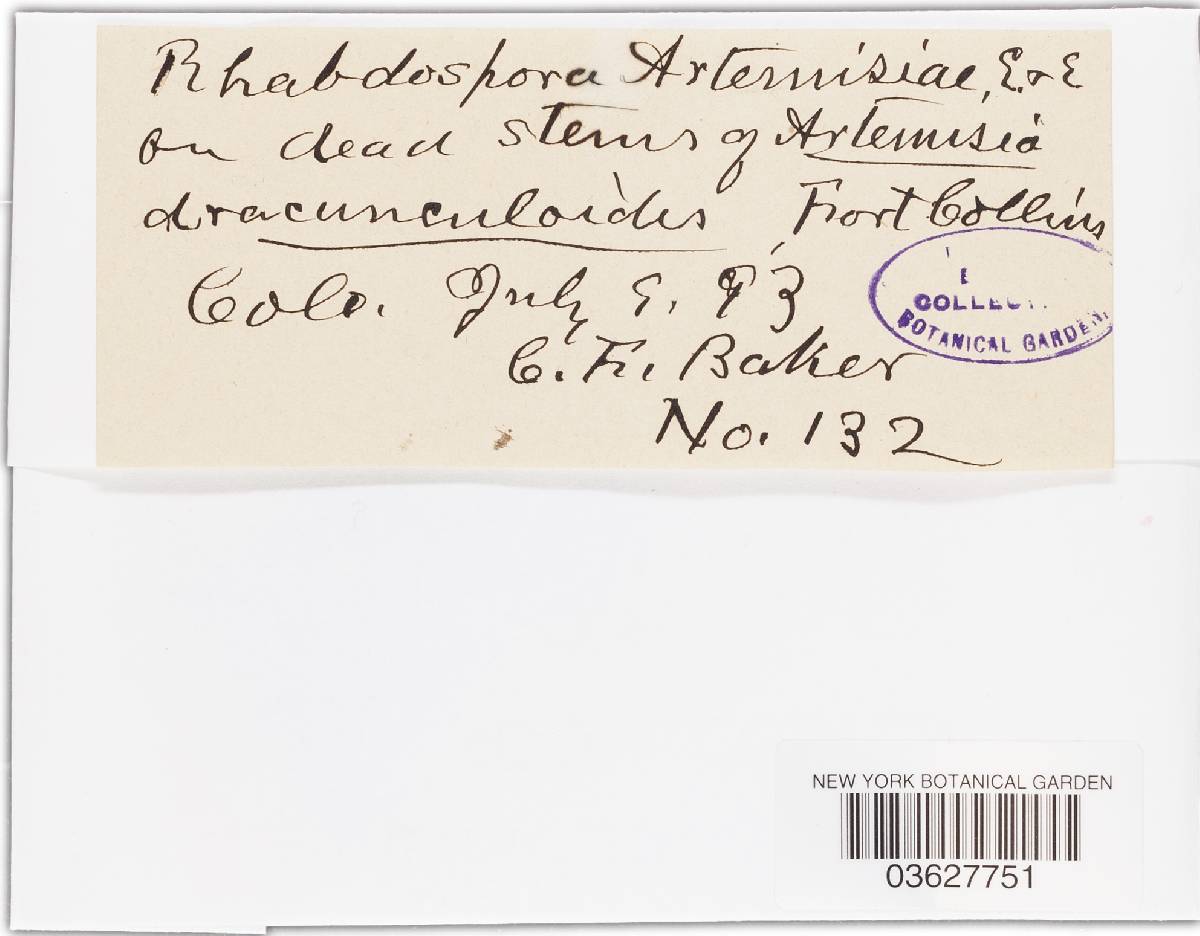 Rhabdospora Artemisiae, E. & E
on dead stems of Artemisia
dracunculoides Fort Collins
Colo. July 9, 93
C. F. Baker
No. 132
COLLECT
BOTANICAL GARDEN
NEW YORK BOTANICAL GARDEN
03627751